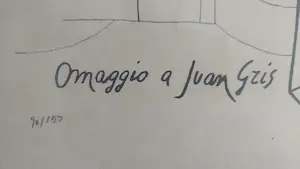 Omaggio a Juan Gris
90/150